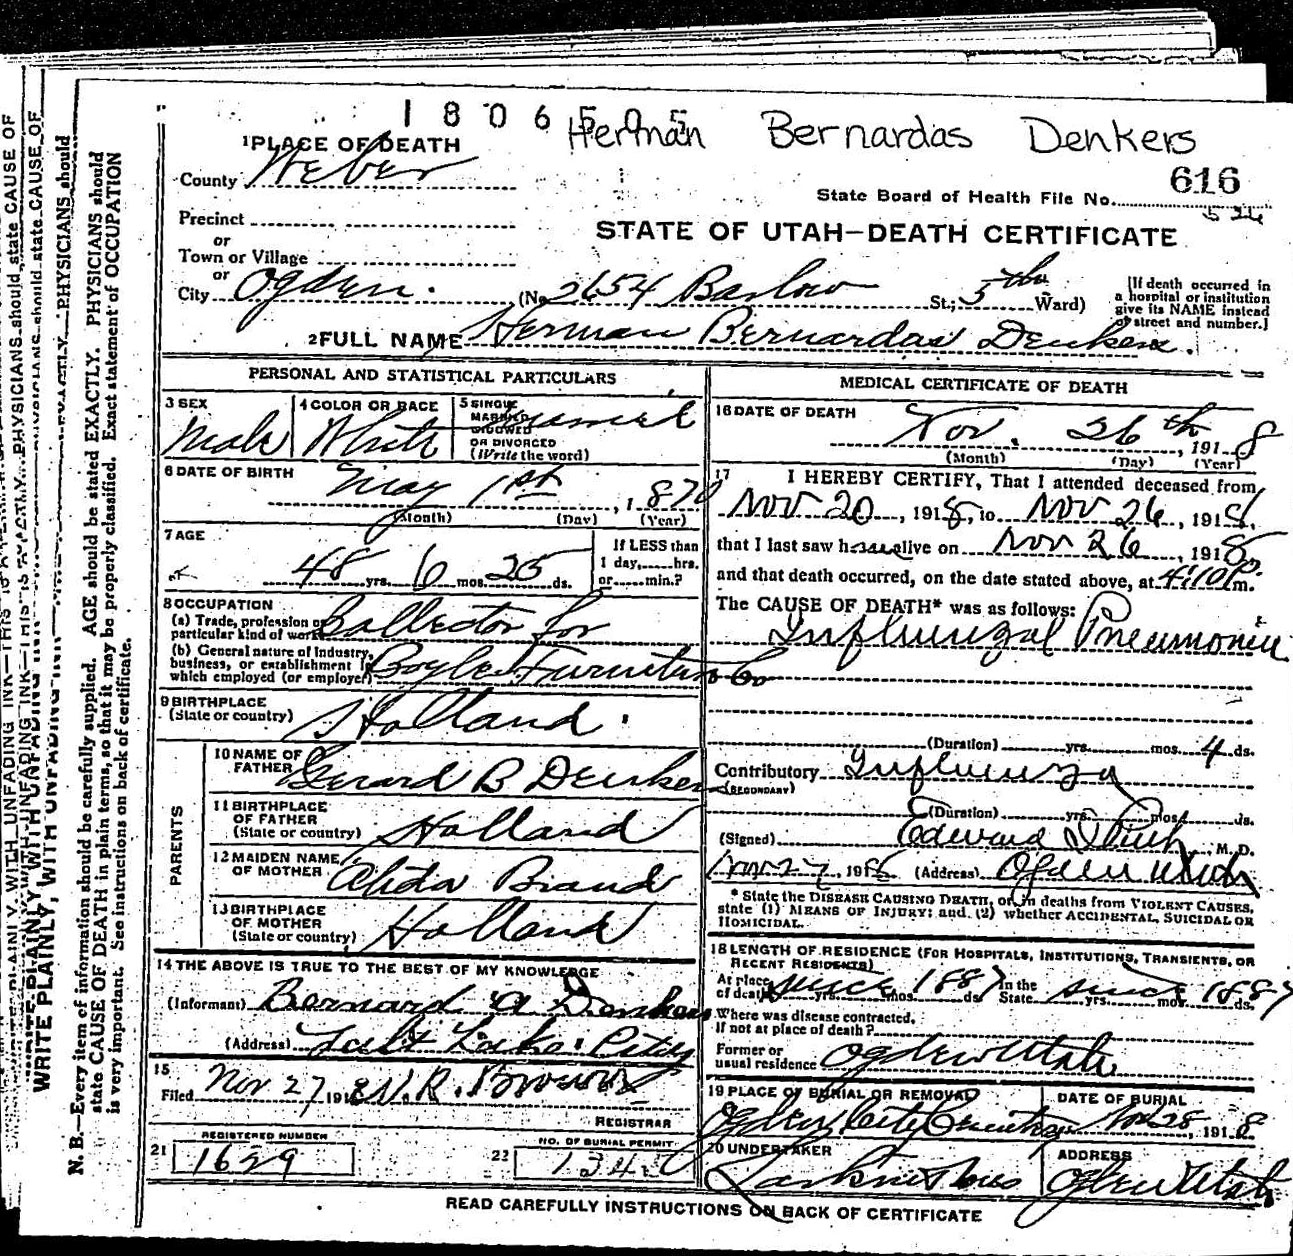 1806505
Herman Bernardas Denkers
1 PLACE OF DEATH
County Weber
State Board of Health File No. 616
526
Precinct
or
Town or Village
or
City Ogden.
STATE OF UTAH—DEATH CERTIFICATE
(No. 2654 Barlow St.; 5th Ward)
[If death occurred in
a hospital or institution
give its NAME instead
of street and number.]
2 FULL NAME Herman Bernardas Denkers.
PERSONAL AND STATISTICAL PARTICULARS
3 SEX
Male
4 COLOR OR RACE
White
5 SINGLE
MARRIED
WIDOWED
OR DIVORCED
(Write the word)
6 DATE OF BIRTH
May 1st, 1870
(Month) (Day) (Year)
7 AGE
48 yrs. 6 mos. 25 ds.
If LESS than
1 day, hrs.
or min.?
8 OCCUPATION
(a) Trade, profession or
particular kind of work Collector for
(b) General nature of Industry,
business, or establishment in
which employed (or employer) Boyle Furniture Co
9 BIRTHPLACE
(State or country) Holland.
PARENTS
10 NAME OF
FATHER Gerard B Denkers
11 BIRTHPLACE
OF FATHER
(State or country) Holland
12 MAIDEN NAME
OF MOTHER Alida Brand
13 BIRTHPLACE
OF MOTHER
(State or country) Holland
14 THE ABOVE IS TRUE TO THE BEST OF MY KNOWLEDGE
(Informant) Bernard A Denkers
(Address) Salt Lake City
15
Filed Nov 27 1918 REGISTRAR
21 REGISTERED NUMBER
1629
22 NO. OF BURIAL PERMIT
MEDICAL CERTIFICATE OF DEATH
16 DATE OF DEATH
Nov. 26th, 1918
(Month) (Day) (Year)
17 I HEREBY CERTIFY, That I attended deceased from
Nov 20, 1918, to Nov 26, 1918.
that I last saw h alive on Nov 26, 1918
and that death occurred, on the date stated above, at m.
The CAUSE OF DEATH* was as follows:
Influenzal Pneumonia
(Duration) yrs. mos. 4 ds.
Contributory Influenza
(SECONDARY)
(Duration) yrs. mos. ds.
(Signed) Edward M. D.
Nov 27, 1918 (Address) Ogden Utah
* State the DISEASE CAUSING DEATH, or, in deaths from VIOLENT CAUSES,
state (1) MEANS OF INJURY; and (2) whether ACCIDENTAL, SUICIDAL OR
HOMICIDAL.
18 LENGTH OF RESIDENCE (FOR HOSPITALS, INSTITUTIONS, TRANSIENTS, OR
RECENT RESIDENTS)
At place
of death since 1887 yrs. mos. ds. In the
State since 1887 yrs. mos. ds.
Where was disease contracted,
if not at place of death?
Former or
usual residence Ogden Utah
19 PLACE OF BURIAL OR REMOVAL
Ogden City Cemetery
DATE OF BURIAL
Nov 28, 1918
20 UNDERTAKER
ADDRESS
Ogden Utah
READ CAREFULLY INSTRUCTIONS ON BACK OF CERTIFICATE
WRITE PLAINLY, WITH UNFADING INK
N. B.—Every item of information should be carefully supplied. AGE should be stated EXACTLY. PHYSICIANS should
state CAUSE OF DEATH in plain terms, so that it may be properly classified. Exact statement of OCCUPATION
is very important. See instructions on back of certificate.